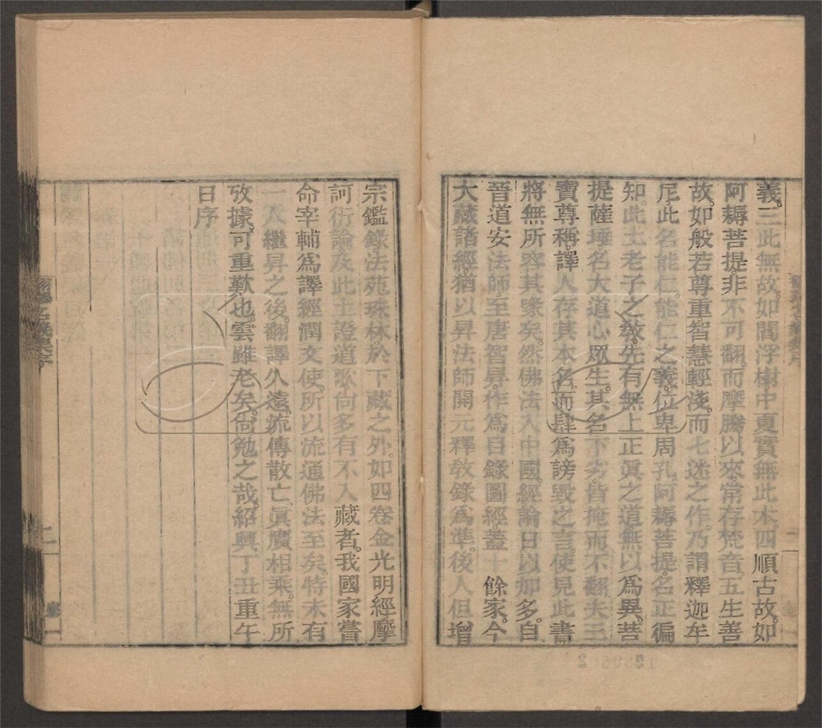 義。三此無故。如閻浮樹中夏實無此木。四順古故。如
阿耨菩提。非不可翻。而摩騰以來。常存梵音。五生善
故。如般若尊重。智慧輕淺。而七迷之作。乃謂釋迦牟
尼此名能仁。能仁之義。位卑周孔。阿耨菩提。名正徧
知。此土老子之教。先有無上正眞之道。無以爲異。菩
提薩埵。名大道心眾生。其名下劣。皆掩而不翻。夫三
寶尊稱。譯人存其本名。而肆爲謗毀之言。使見此書。
將無所容其喙矣。然佛法入中國。經論日以加多。自
晉道安法師至唐智昇。作爲目錄圖經。蓋十餘家。今
大藏諸經。猶以昇法師開元釋教錄爲準。後人但增
宗鑑錄法苑珠林於下藏之外。如四卷金光明經摩
訶衍論及此土證道歌。尙多有不入藏者。我國家嘗
命宰輔爲譯經潤文使。所以流通佛法至矣。特未有
一人繼昇之後。翻譯久遠。流傳散亡。眞贗相乘。無所
攷據。可重歎也。雲雖老矣。尙勉之哉。紹興丁丑重午
日序